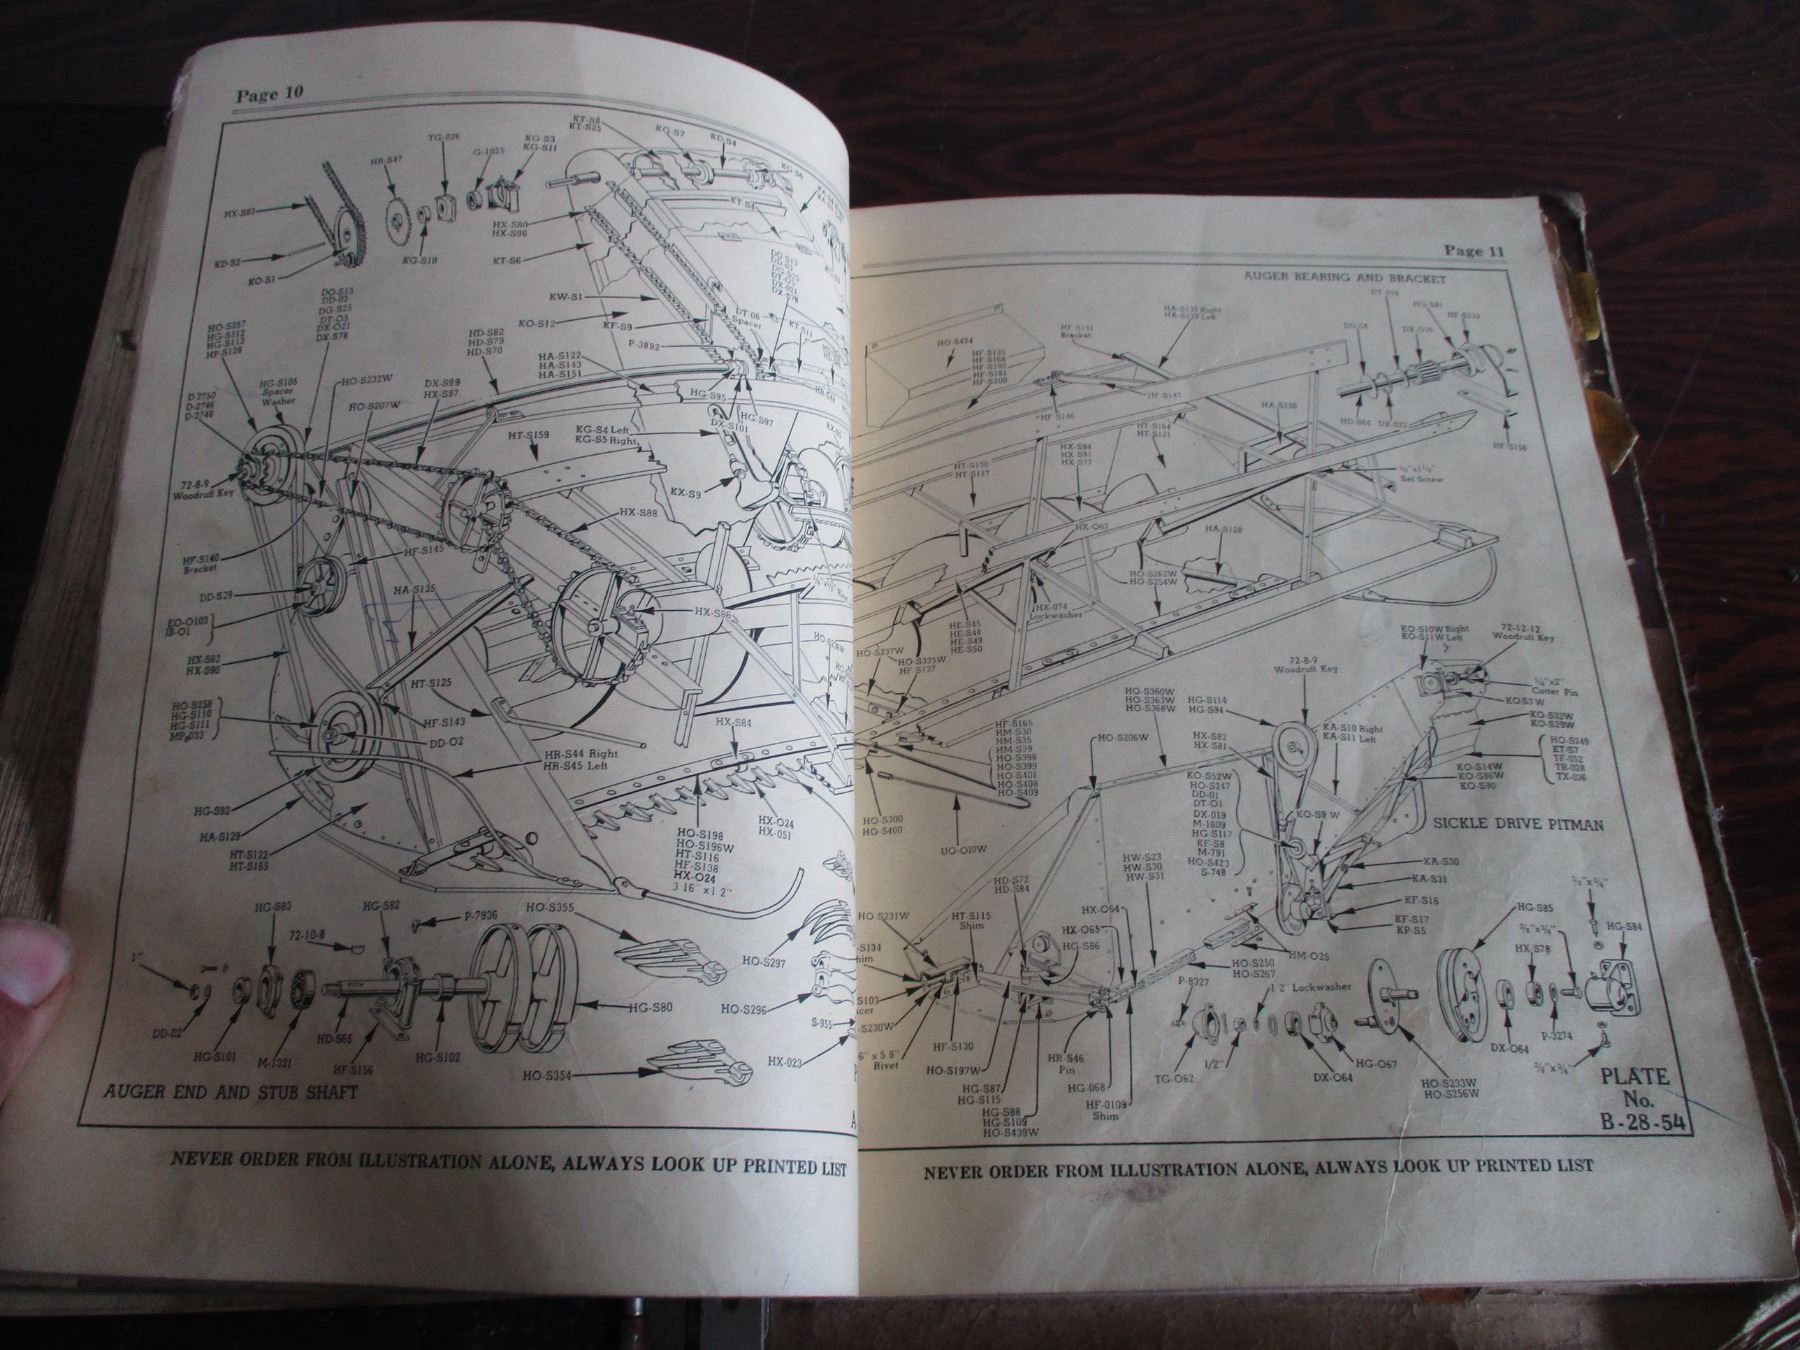 Page 10
KT-S8
KT-S25
KG-S7
KD-S4
KG-S6
TG-02K
KG-S3
KG-S11
G-1025
HR-S47
HX-S83
KD-S2
KO-S1
KG-S10
HX-S80
HX-S96
KT-S6
KT-S4
DO-S13
DD-03
DG-S25
DT-O5
DX-O21
DX-S78
KW-S1
KO-S12
KF-S9
DT-06
Spacer
KT-S11
P-3882
DO-S13
DD-03
DG-S25
DT-O5
DX-O21
DX-S78
HO-S257
HG-S112
HG-S113
HF-S128
HD-S82
HD-S79
HD-S70
HA-S122
HA-S143
HA-S151
D-2750
D-2746
D-2748
HG-S105
Spacer
Washer
HO-S232W
HO-S207W
DX-S99
HX-S97
HG-S95
HG-S97
DX-S101
HT-S159
KG-S4 Left
KG-S5 Right
72-8-9
Woodruff Key
KX-S9
HX-S88
HF-S140
Bracket
HF-S145
DD-S29
HA-S135
EO-O103
IB-O1
HX-S86
HX-S82
HX-S90
HT-S125
HO-S258
HG-S110
HG-S111
MP-033
HF-S143
DD-O2
HX-S84
HR-S44 Right
HR-S45 Left
HG-S92
HA-S129
HT-S122
HT-S163
HX-O24
HX-051
HO-S198
HO-S196W
HT-S116
HF-S138
HX-O24
3 16" x 1 2"
HG-S83
HG-S82
P-7936
HO-S355
72-10-8
1"
HO-S297
HO-S296
HG-S80
DD-02
HG-S101
M-1321
HD-S65
HF-S156
HG-S102
HO-S354
S-955
HX-023
AUGER END AND STUB SHAFT
NEVER ORDER FROM ILLUSTRATION ALONE, ALWAYS LOOK UP PRINTED LIST
Page 11
AUGER BEARING AND BRACKET
HG-S81
DX-O16
HD-S64
DX-S22
HF-S156
HO-S424
HF-S151
Bracket
HA-S132 Right
HA-S133 Left
HF-S135
HF-S166
HF-S180
HF-S181
HF-S200
HF-S146
HF-S141
HA-S136
HT-S164
HT-S121
HX-S94
HX-S91
HX-S77
HT-S150
HT-S117
Set Screw
HX-O67
HA-S128
HO-S262W
HO-S254W
HX-074
Lockwasher
HE-S45
HE-S48
HE-S49
HE-S50
HO-S237W
HO-S335W
HF-S137
KO-S10W Right
KO-S11W Left
72-12-12
Woodruff Key
72-8-9
Woodruff Key
1/4" x 2"
Cotter Pin
KO-S3 W
KO-S32W
KO-S29W
HO-S249
KT-S7
TF-052
TB-028
TX-036
HO-S360W
HO-S363W
HO-S368W
HG-S114
HG-S94
KA-S10 Right
KA-S11 Left
HX-S82
HX-S81
KO-S14W
KO-S86W
KO-S90
HF-S165
HM-S30
HM-S35
HM-S39
HO-S398
HO-S399
HO-S401
HO-S408
HO-S409
HO-S206W
KO-S52W
HO-S247
DD-01
DT-O1
DX-019
M-1609
HG-S117
KF-S8
M-791
HO-S423
S-748
KO-S9 W
SICKLE DRIVE PITMAN
HO-S300
HO-S400
UO-O10W
KA-S30
KA-S31
KF-S16
KF-S17
KP-S5
HW-S23
HW-S30
HW-S31
HD-S72
HD-S84
HX-O64
HX-O65
HG-S86
HO-S231W
HT-S115
Shim
HM-O25
HO-S250
HO-S267
P-8327
1 2" Lockwasher
HG-S85
HX-S78
HG-S84
P-3274
S-230W
Rivet
HF-S130
HO-S197W
HG-S87
HG-S115
HG-S88
HG-S109
HO-S439W
HR-S46
Pin
HG-068
HF-0109
Shim
TG-O62
1/2"
DX-O64
HG-O67
DX-O64
HO-S233W
HO-S256W
PLATE
No.
B-28-54
NEVER ORDER FROM ILLUSTRATION ALONE, ALWAYS LOOK UP PRINTED LIST